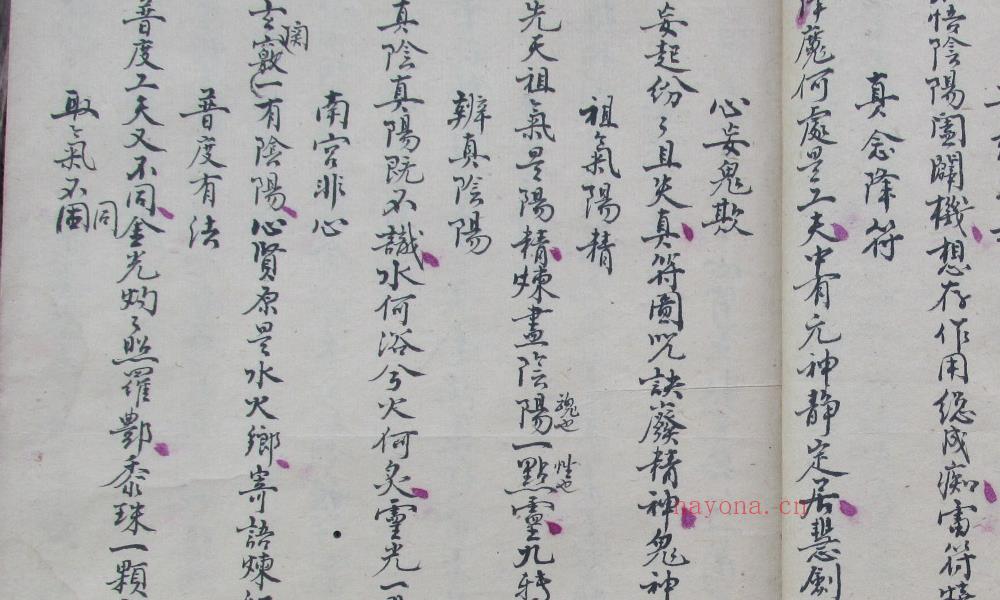 悟陰陽闔闢機想存作用總成痴雷符
真念降符
降魔何處是工夫中有元神静定居慧劍
心妄鬼欺
妄起份々且失真符圖咒訣廢精神鬼神
祖氣陽精
先天祖氣是陽精煉盡陰陽一點靈九轉
魂也
性也
辨真陰陽
真陰真陽既不識水何浴兮火何炙靈光一
南宮非心
玄竅一有陰陽心腎原是水火鄉寄語煉
関
普度有法
普度工夫又不同金光灼々照羅酆黍珠一顆
取氣不固
同
nayona.cn